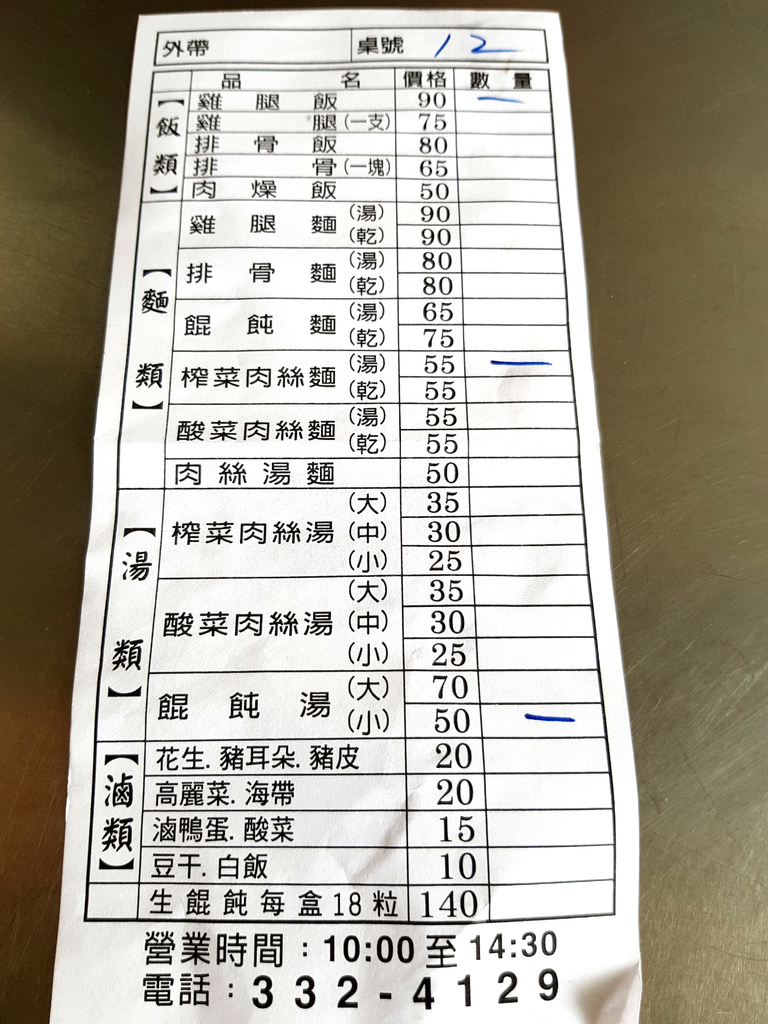 外帶 桌號 12
品名 價格 數量
【飯類】
雞腿飯 90 一
雞腿(一支) 75
排骨飯 80
排骨(一塊) 65
肉燥飯 50
【麵類】
雞腿麵 (湯) 90
(乾) 90
排骨麵 (湯) 80
(乾) 80
餛飩麵 (湯) 65
(乾) 75
榨菜肉絲麵 (湯) 55 一
(乾) 55
酸菜肉絲麵 (湯) 55
(乾) 55
肉絲湯麵 50
【湯類】
榨菜肉絲湯 (大) 35
(中) 30
(小) 25
酸菜肉絲湯 (大) 35
(中) 30
(小) 25
餛飩湯 (大) 70
(小) 50 一
【滷類】
花生.豬耳朵.豬皮 20
高麗菜.海帶 20
滷鴨蛋.酸菜 15
豆干.白飯 10
生餛飩每盒18粒 140
營業時間：10:00至14:30
電話：332-4129